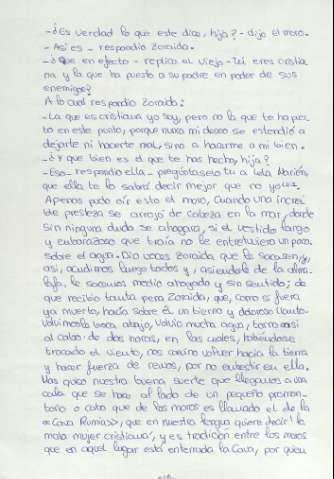 -¿Es verdad lo que este dice, hija? - dijo el moro.
- Así es - respondió Zoraida.
-¿Que en efecto - replicó el viejo - tú eres cristia
na y la que ha puesto a su padre en poder de sus
enemigos?
A lo cual respondió Zoraida:
- La que es cristiana yo soy, pero no la que te ha pues
to en este punto, porque nunca mi deseo se extendió a
dejarte ni hacerte mal, sino a hacerme a mí bien.
-¿Y qué bien es el que te has hecho, hija?
- Eso - respondió ella - pregúntaselo tú a Lela Marién,
que ella te lo sabrá decir mejor que no yo
Apenas pudo oír esto el moro, cuando una increí
ble presteza se arrojó de cabeza en la mar, donde
sin ninguna duda se ahogara, si el vestido largo
y embarazoso que traía no le entretuviera un poco
sobre el agua. Dio voces Zoraida que le sacasen, y
así, acudimos luego todos y, asiéndole de la alma
lafa, le sacamos medio ahogado y sin sentido; de
que recibió tanta pena Zoraida, que, como si fuera
ya muerto, hacía sobre él un tierno y doloroso llanto.
Volvímoslo boca abajo, volvió mucha agua, tornó en sí
al cabo de dos horas, en las cuales, habiéndose
trocado el viento, nos convino volver hacia la tierra
y hacer fuerza de remos, por no embestir en ella.
Mas quiso nuestra buena suerte que llegamos a una
cala que se hace al lado de un pequeño promon-
torio o cabo que de los moros es llamado el de la
«Cava Rumía», que en nuestra lengua quiere decir "la
mala mujer cristiana", y es tradición entre los moros
que en aquel lugar está enterrada la Cava, por quien